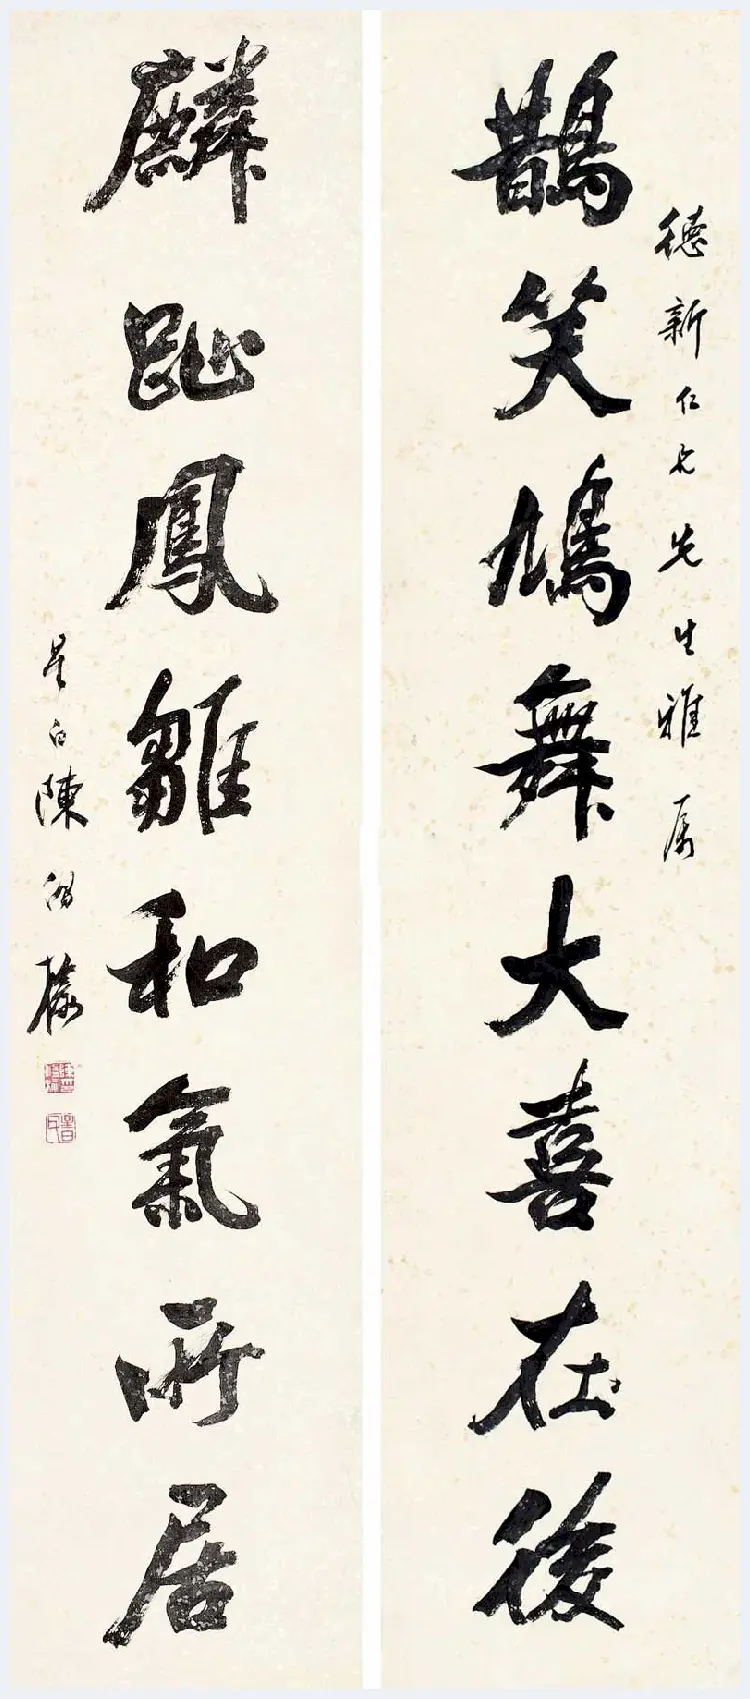 德新仁七先生雅属
鵲笑鳩舞大喜在後
麟趾鳳雛和氣所居
星白陳